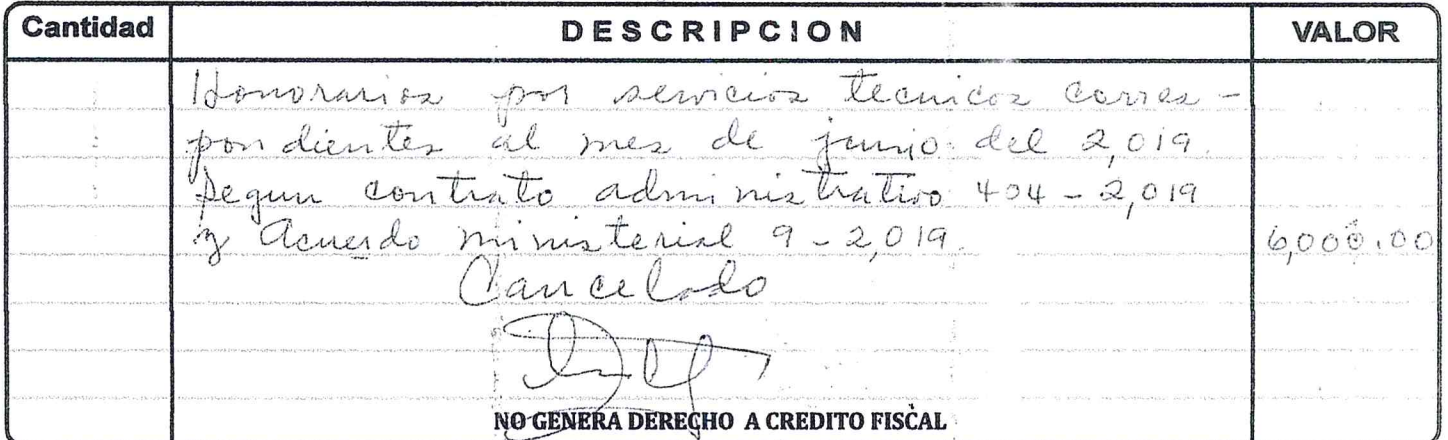 Cantidad DESCRIPCION VALOR
Honorarios por servicios tecnicos corres-
pondientes al mes de junio del 2,019.
Segun contrato administrativo 404-2,019
y Acuerdo ministerial 9-2,019. 6,000.00
Cancelado
NO GENERA DERECHO A CREDITO FISCAL